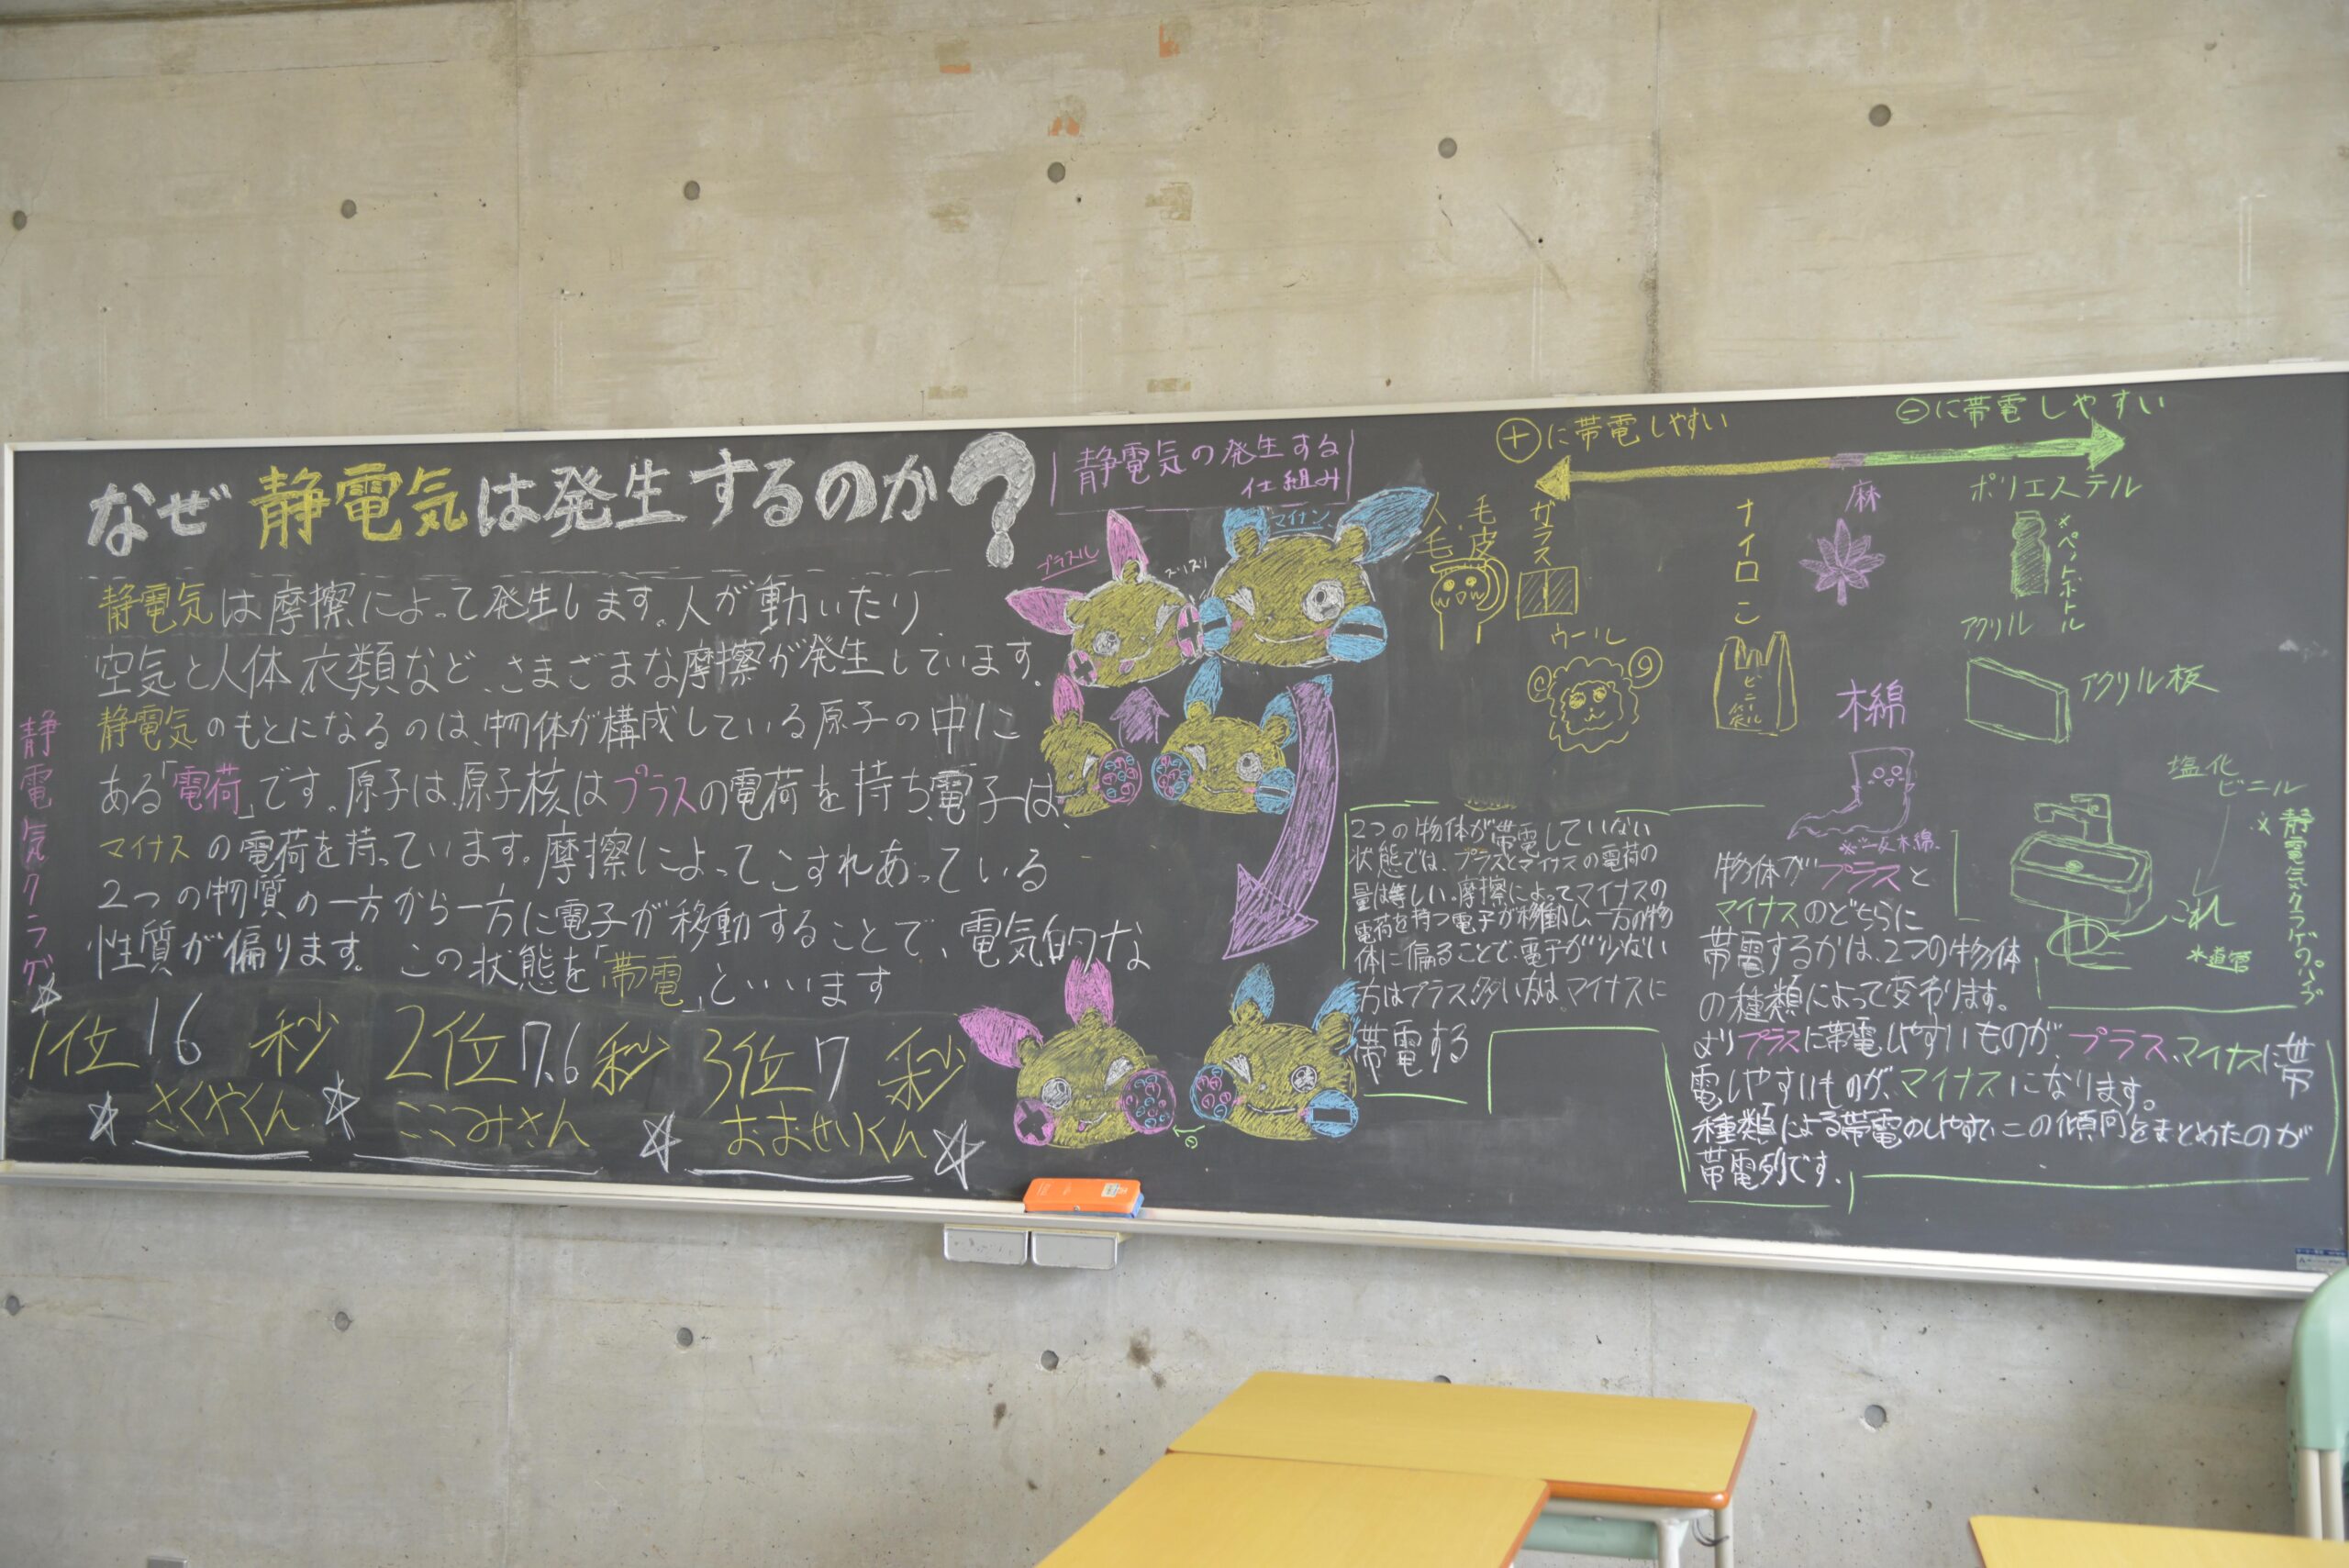 なぜ静電気は発生するのか?
静電気は摩擦によって発生します。人が動いたり
空気と人体衣類など、さまざまな摩擦が発生しています。
静電気のもとになるのは、物体が構成している原子の中に
ある「電荷」です。原子は、原子核はプラスの電荷を持ち、電子は、
マイナスの電荷を持っています。摩擦によってこすれあっている
2つの物質の一方から一方に電子が移動することで、電気的な
性質が偏ります。この状態を「帯電」といいます
静電気クラゲ
1位 16 秒 2位 7.6 秒 3位 7 秒
さくやくん ここつみさん おおせりくん
静電気の発生する
仕組み
プラスル
マイナン
スリスリ
⊕に帯電しやすい
⊖に帯電しやすい
人毛
毛皮
ガラス
ウール
ナイロン
ビニール袋
麻
木綿
※一反木綿
ポリエステル
※ペットボトル
アクリル
アクリル板
塩化
ビニール
これ
水道管
※静電気クラゲのパイプ
2つの物体が帯電していない
状態では、プラスとマイナスの電荷の
量は等しい。摩擦によってマイナスの
電荷を持つ電子が移動し、一方の物
体に偏ることで、電子が少ない
方はプラス、多い方はマイナスに
帯電する
物体がプラスと
マイナスのどちらに
帯電するかは、2つの物体
の種類によって変わります。
よりプラスに帯電しやすいものが、プラス、マイナスに帯
電しやすいものが、マイナスになります。
種類による帯電のしやすいこの傾向をまとめたのが
帯電列です。